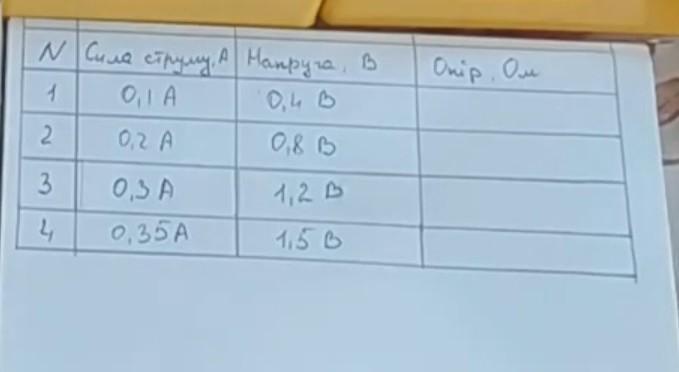 N Сила струму, А Напруга, В Опір, Ом
1 0,1 А 0,4 В
2 0,2 А 0,8 В
3 0,3 А 1,2 В
4 0,35 А 1,5 В